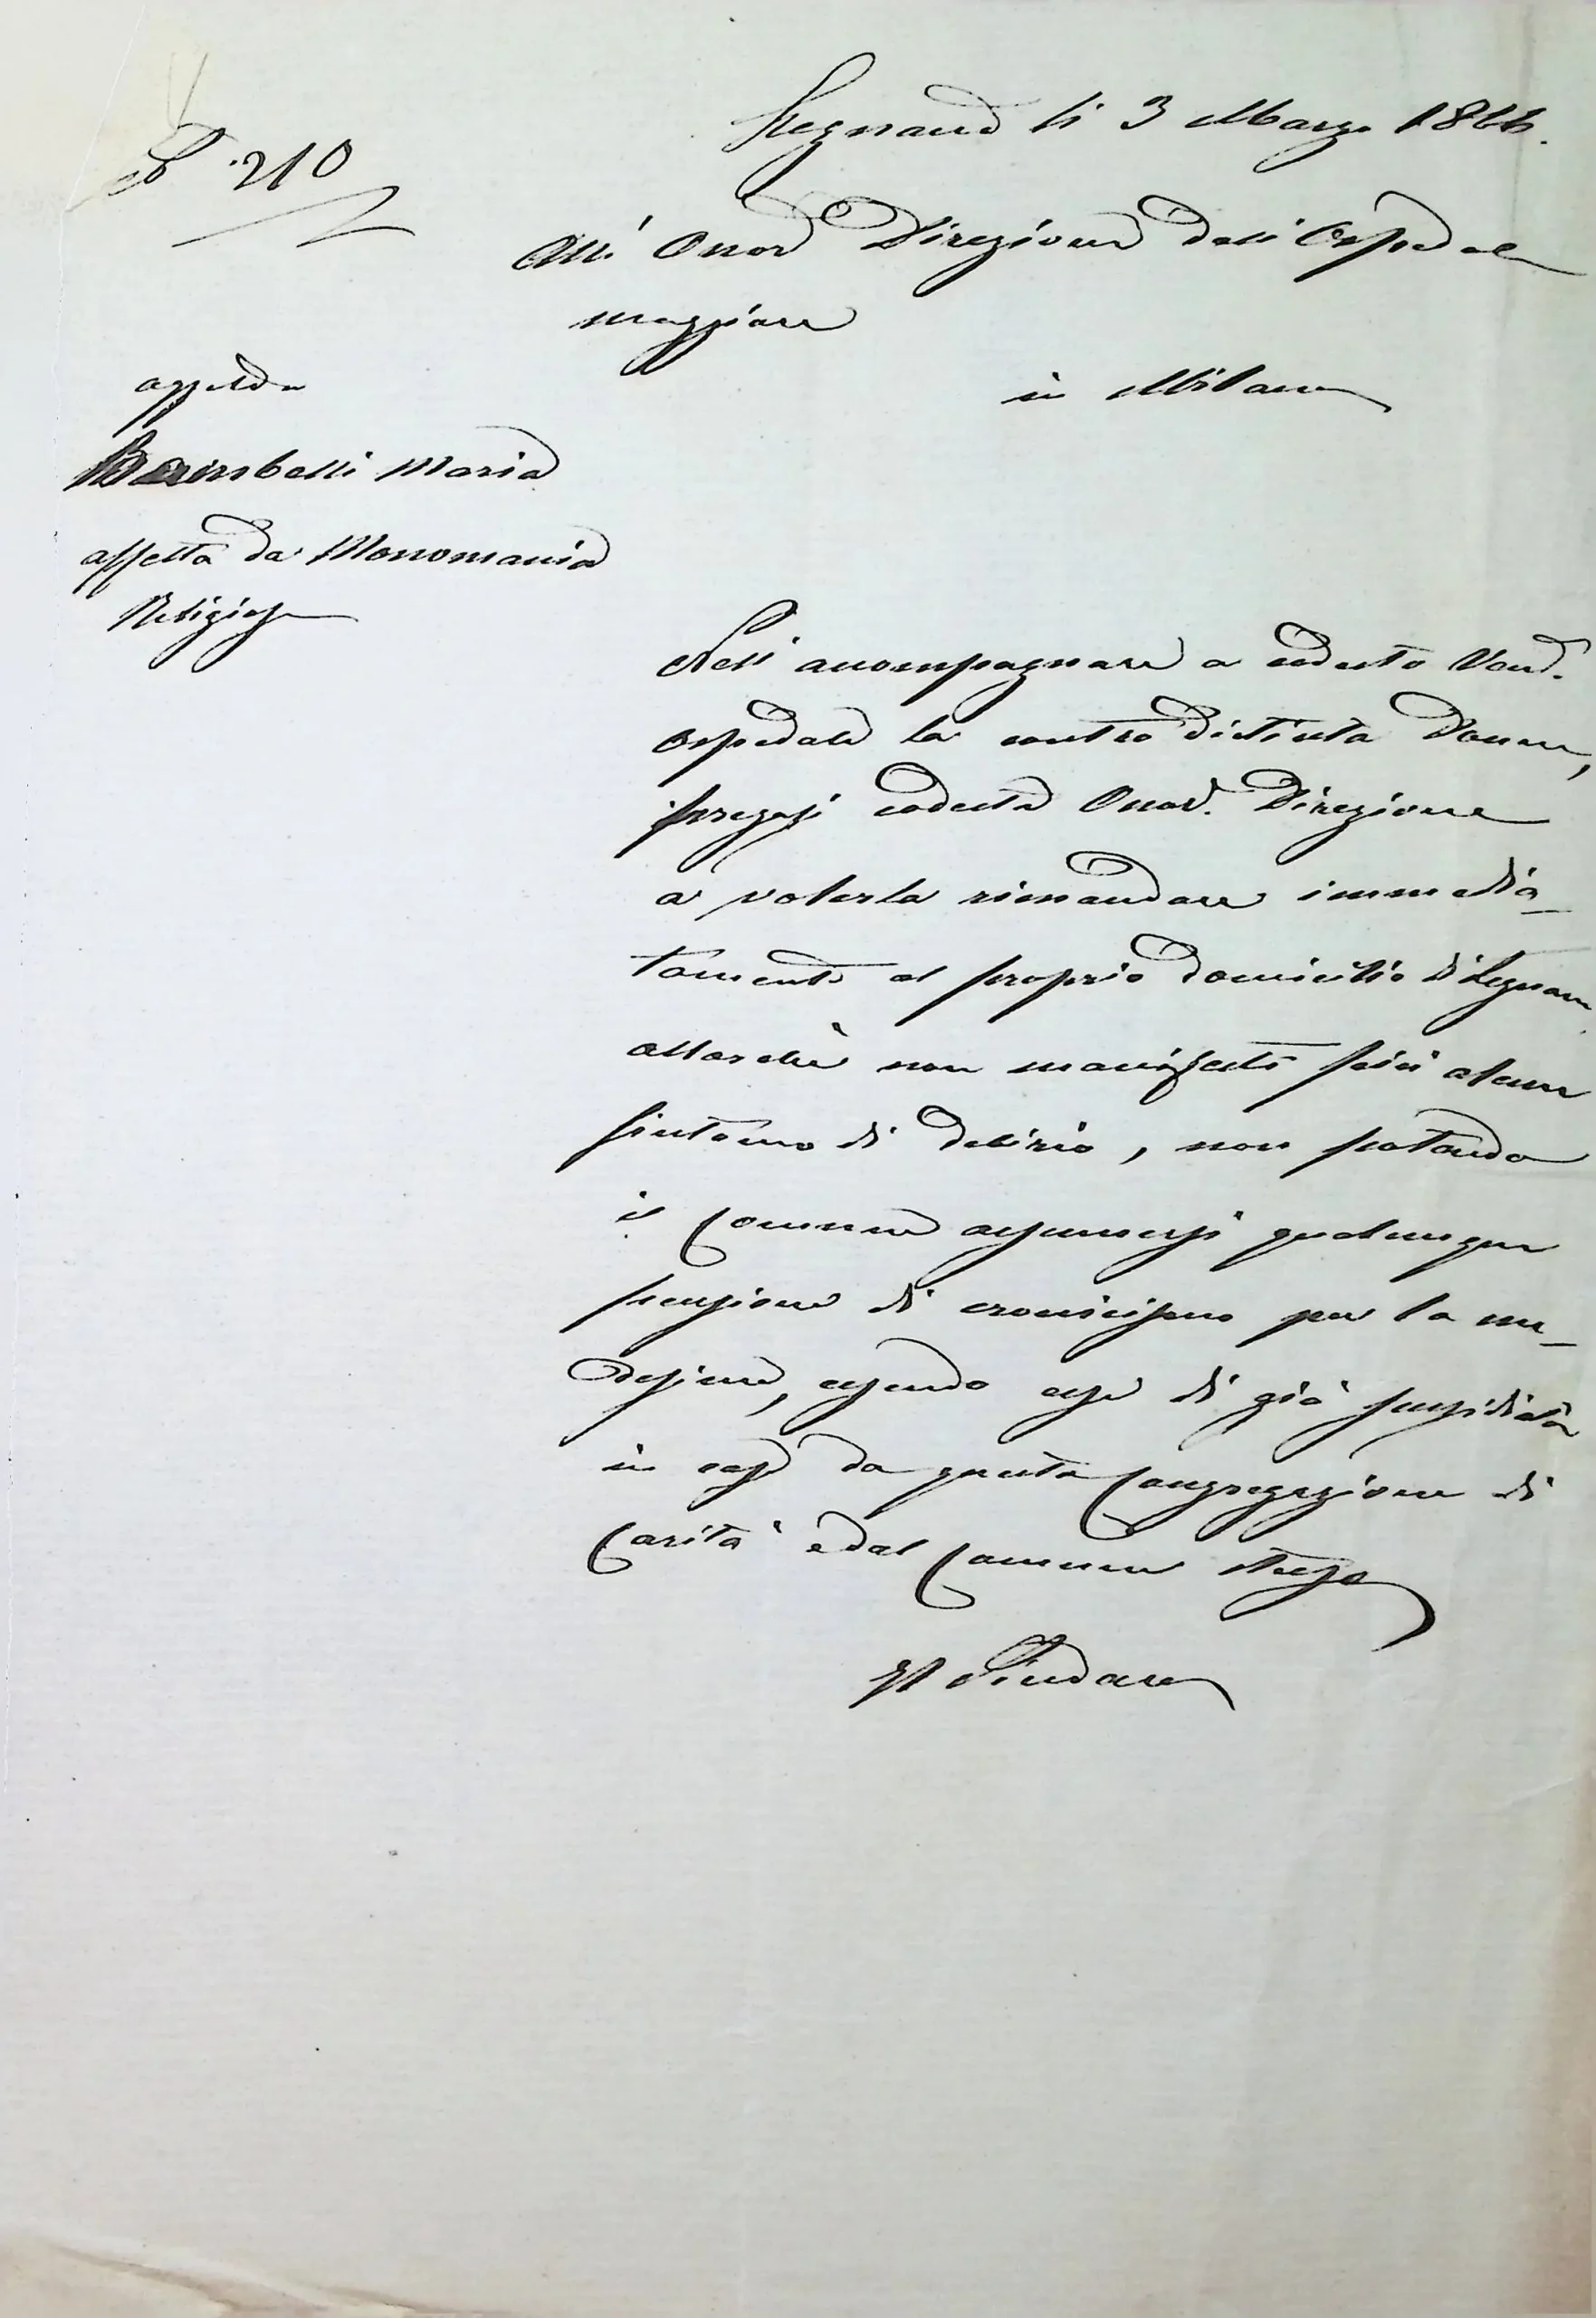 Legnano li 3 Marzo 1866.
N° 210
All' Onor Direzione dell' Ospedale
maggiore
in Milano
oggetto
Barimbelli Maria
affetta da Monomania
Religiosa
Nell' accompagnare a codesto Vend.
ospedale la controdistinta Donna,
pregasi codesta Onor. Direzione
a volerla rimandare immedia-
tamente al proprio domicilio di Legnano
allorchè non manifesti più alcun
sintomo di delirio, non potendo
il Comune assumersi qualunque
pensione di cronicismo per la me-
desima, essendo essa di già sussidiata
in casa da questa Congregazione di
Carità e dal Comune stesso
Il Sindaco